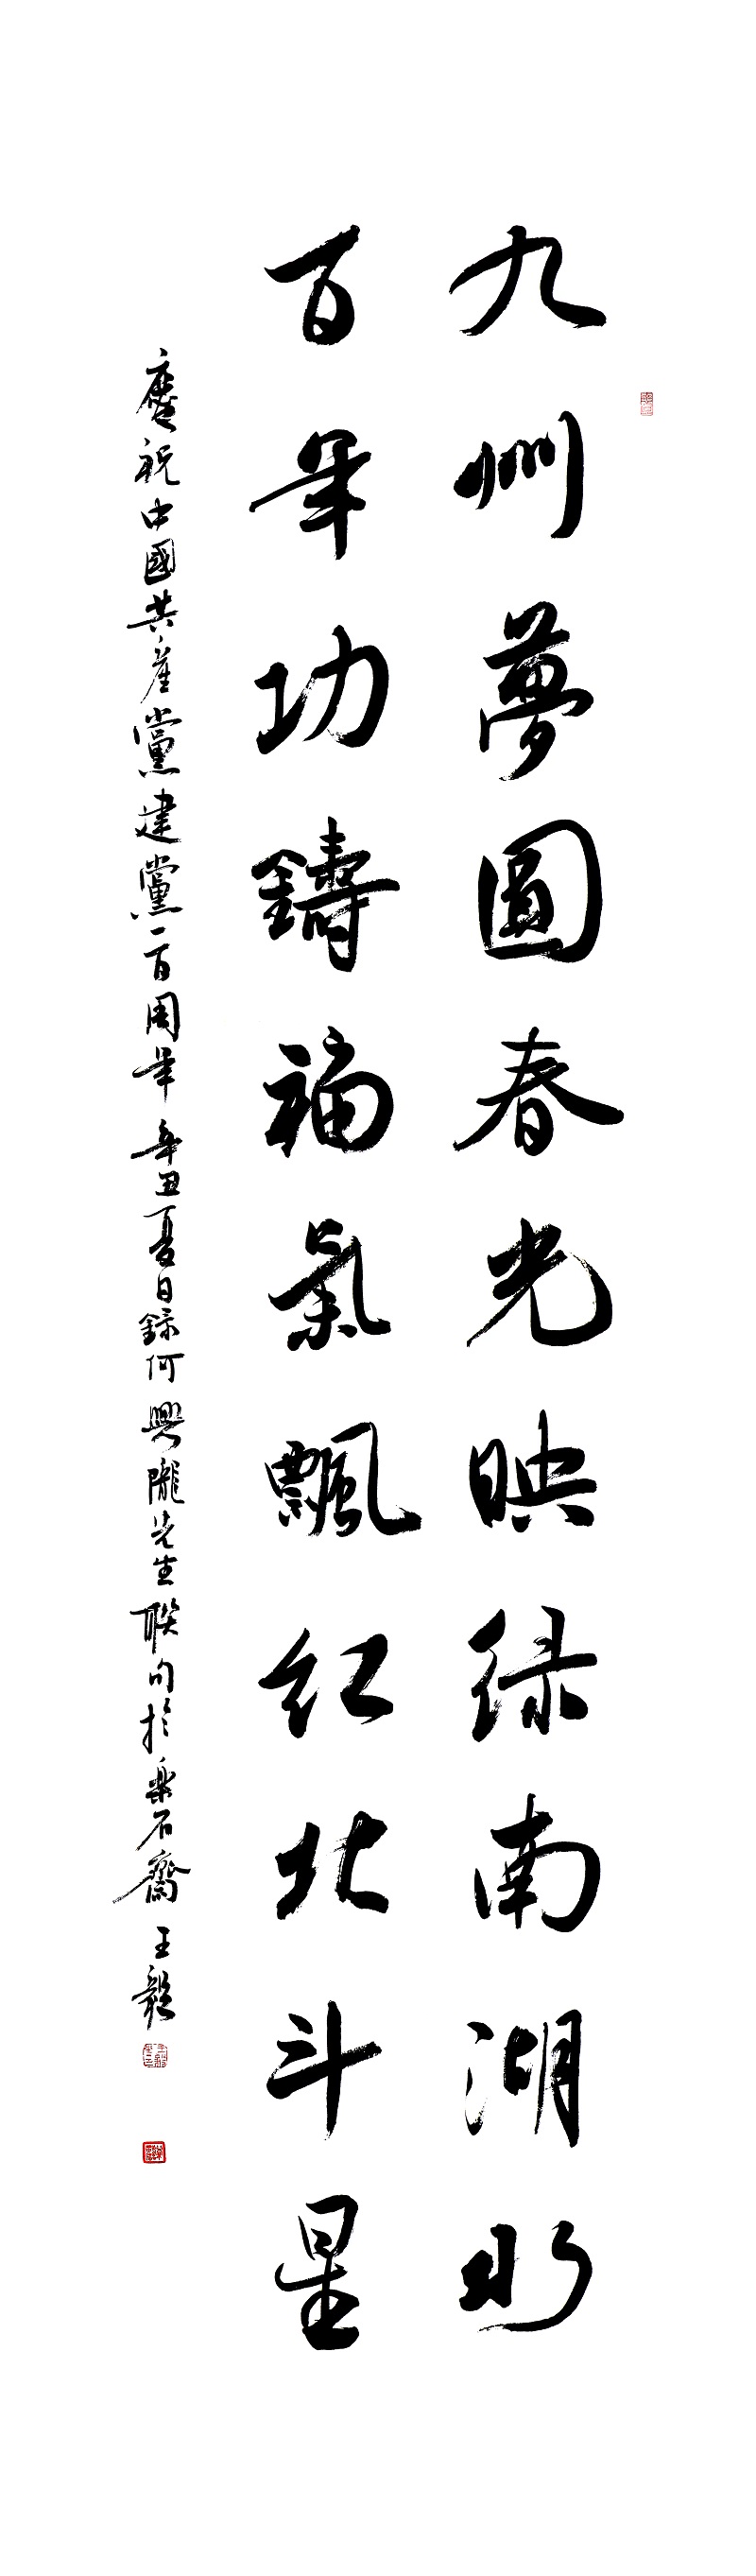 九州夢圓春光映绿南湖水
百年功鑄福氣飄红北斗星
慶祝中國共産黨建黨一百周年辛丑夏日録何興隴先生聯句於樂石齋王毅